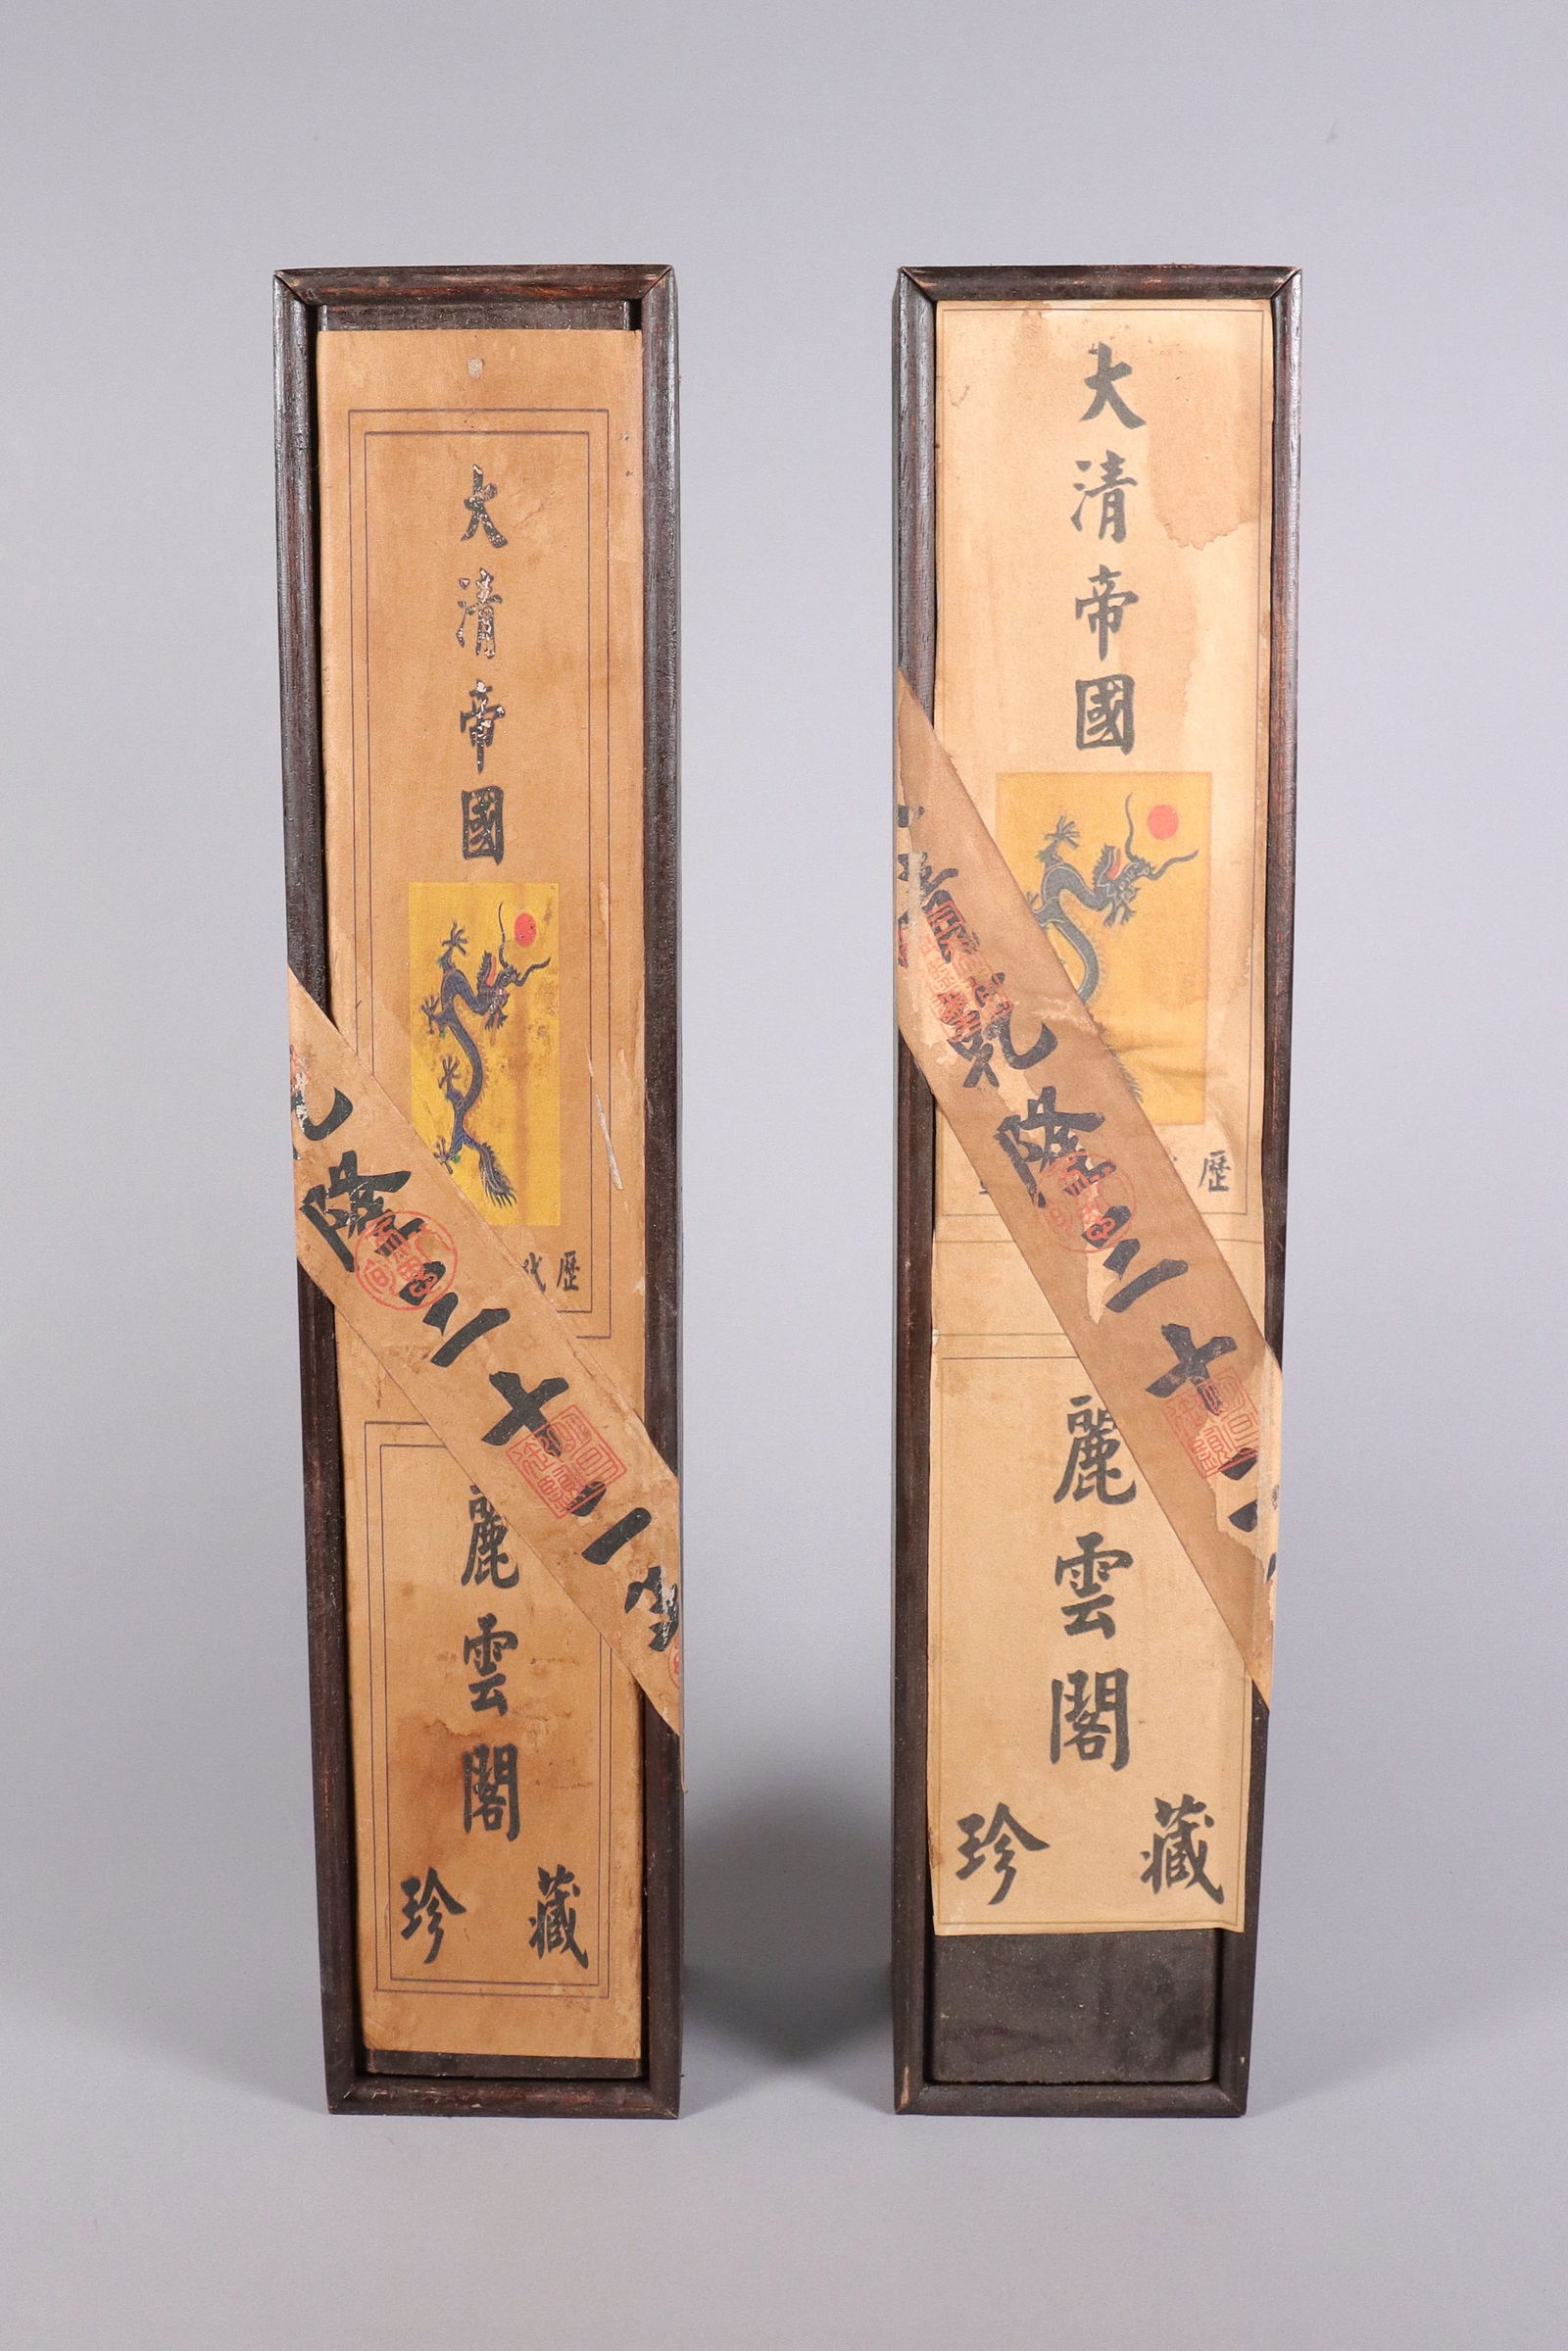 大清帝國
歷代
隆三十二年
麗雲閣
珍藏
大清帝國
歷
清乾隆三十二
麗雲閣
珍藏